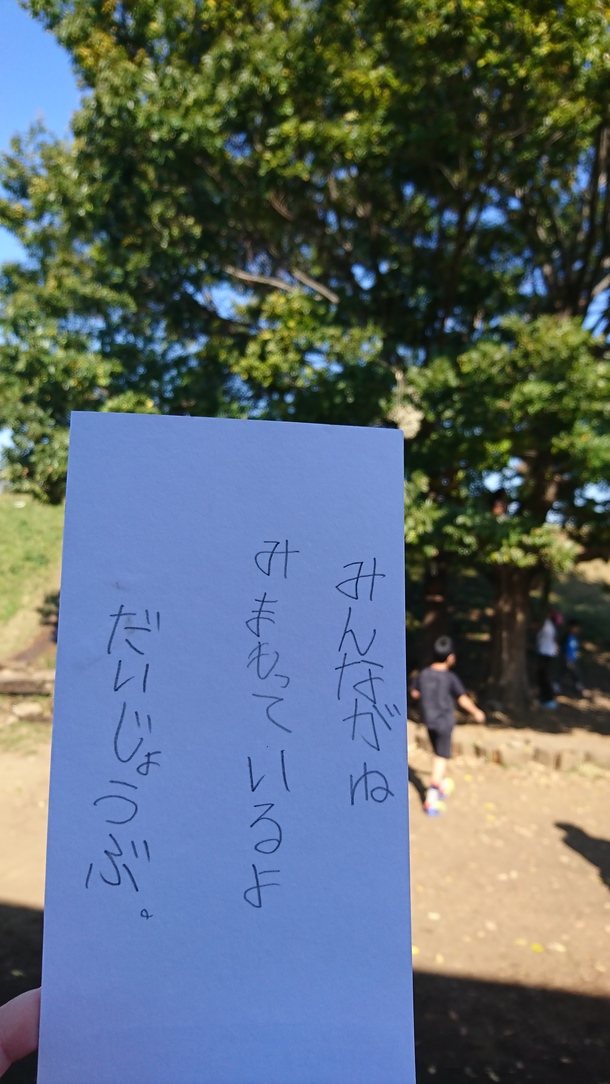 みんながね
みまもっているよ
だいじょうぶ。